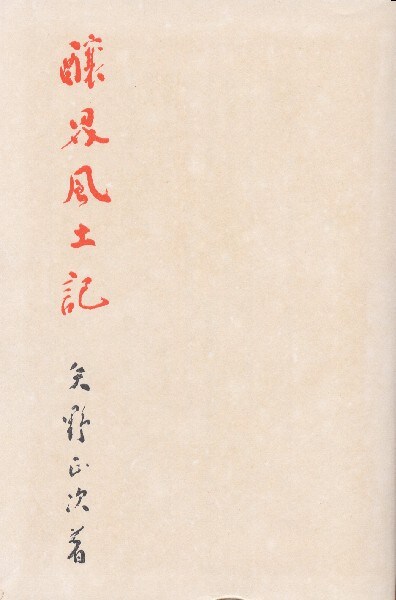 醸界風土記
矢野正次著